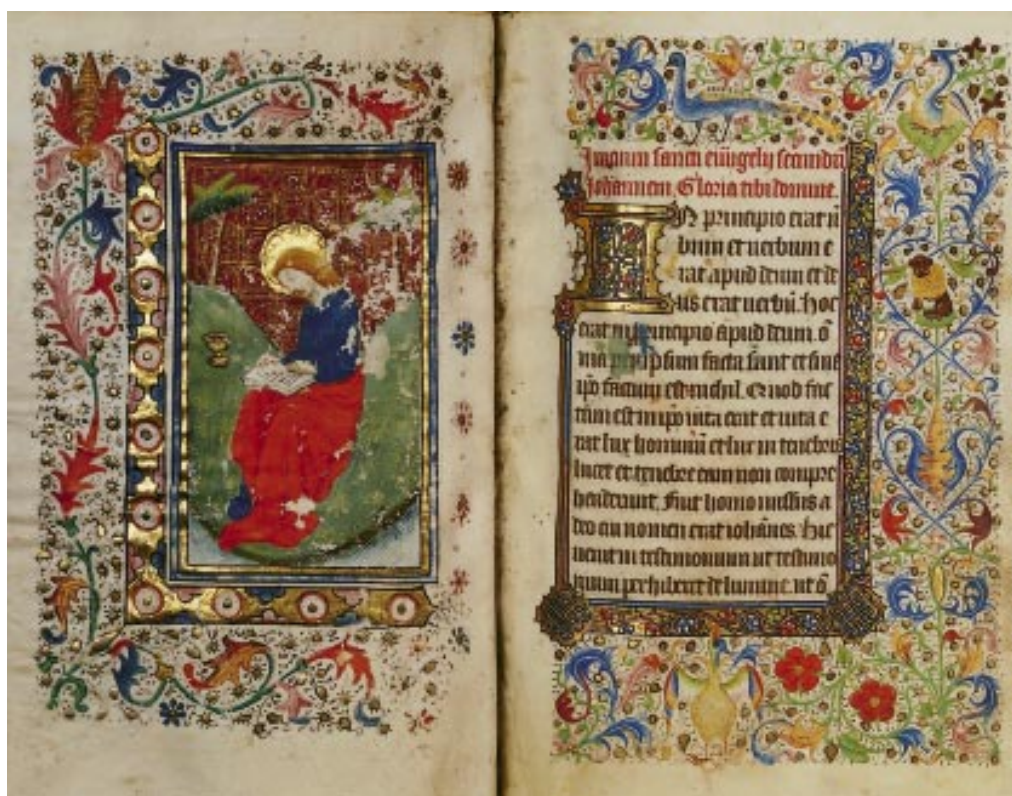 Inicium sancti euügelij secundū
Johannem. Gloria tibi domine.
IN principio erat ū
bum et uerbum e
rat apud deum et de
us erat uerbū. hoc
erat in principio apud deum. ō
nia per ipsum facta sunt et sine
ip̄o factum est nichil. Quod fac
tum est in ip̄o uita erat et uita e
rat lux hominū et lux in tenebris
lucet et tenebre eam non compre
henderunt. Fuit homo missus a
deo cui nomen erat iohānes. hic
uenit in testimonium ut testimo
nium perhiberet de lumine. ut ō